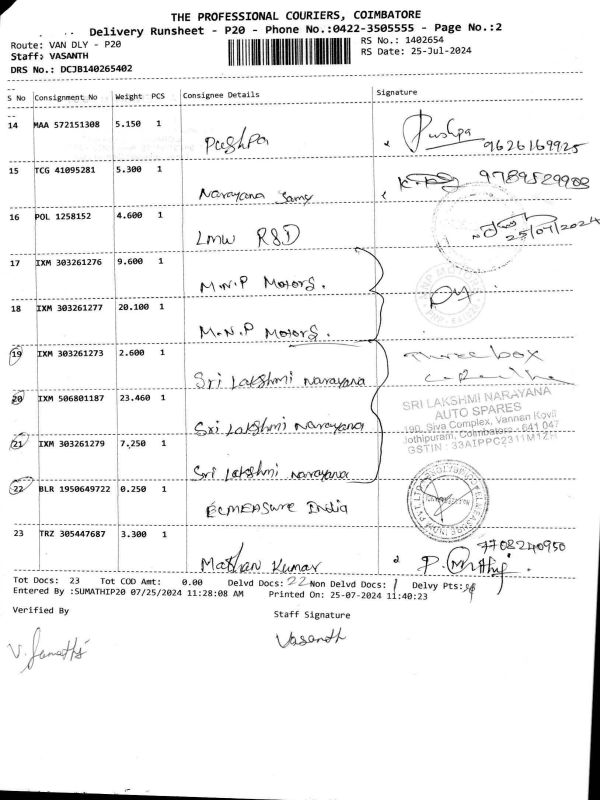 THE PROFESSIONAL COURIERS, COIMBATORE
Delivery Runsheet - P20 - Phone No.:0422-3505555 - Page No.:2
Route: VAN DLY - P20
RS No.: 1402654
Staff: VASANTH
RS Date: 25-Jul-2024
DRS No.: DCJB140265402
S No Consignment No Weight PCS Consignee Details Signature
14 MAA 572151308 5.150 1 Pushpa Pushpa 9626169925
15 TCG 41095281 5.300 1 Narayana Samy
16 POL 1258152 4.600 1 LMW R&D 25/07/2024
17 IXM 303261276 9.600 1 M.N.P Motors.
18 IXM 303261277 20.100 1 M.N.P Motors.
19 IXM 303261273 2.600 1 Sri Lakshmi Narayana Three box
20 IXM 506801187 23.460 1 Sri Lakshmi Narayana
SRI LAKSHMI NARAYANA
AUTO SPARES
190, Siva Complex, Vannan Kovil
Jothipuram, Coimbatore - 641 047
GSTIN : 33AIPPC2311M1ZH
21 IXM 303261279 7.250 1 Sri Lakshmi Narayana
22 BLR 1950649722 0.250 1 ECMEASURE India
23 TRZ 305447687 3.300 1 Mathan Kumar 7708240950
Tot Docs: 23 Tot COD Amt: 0.00 Delvd Docs: 22 Non Delvd Docs: 1 Delvy Pts:
Entered By :SUMATHIP20 07/25/2024 11:28:08 AM Printed On: 25-07-2024 11:40:23
Verified By
Staff Signature
V. Sumathi
Vasanth